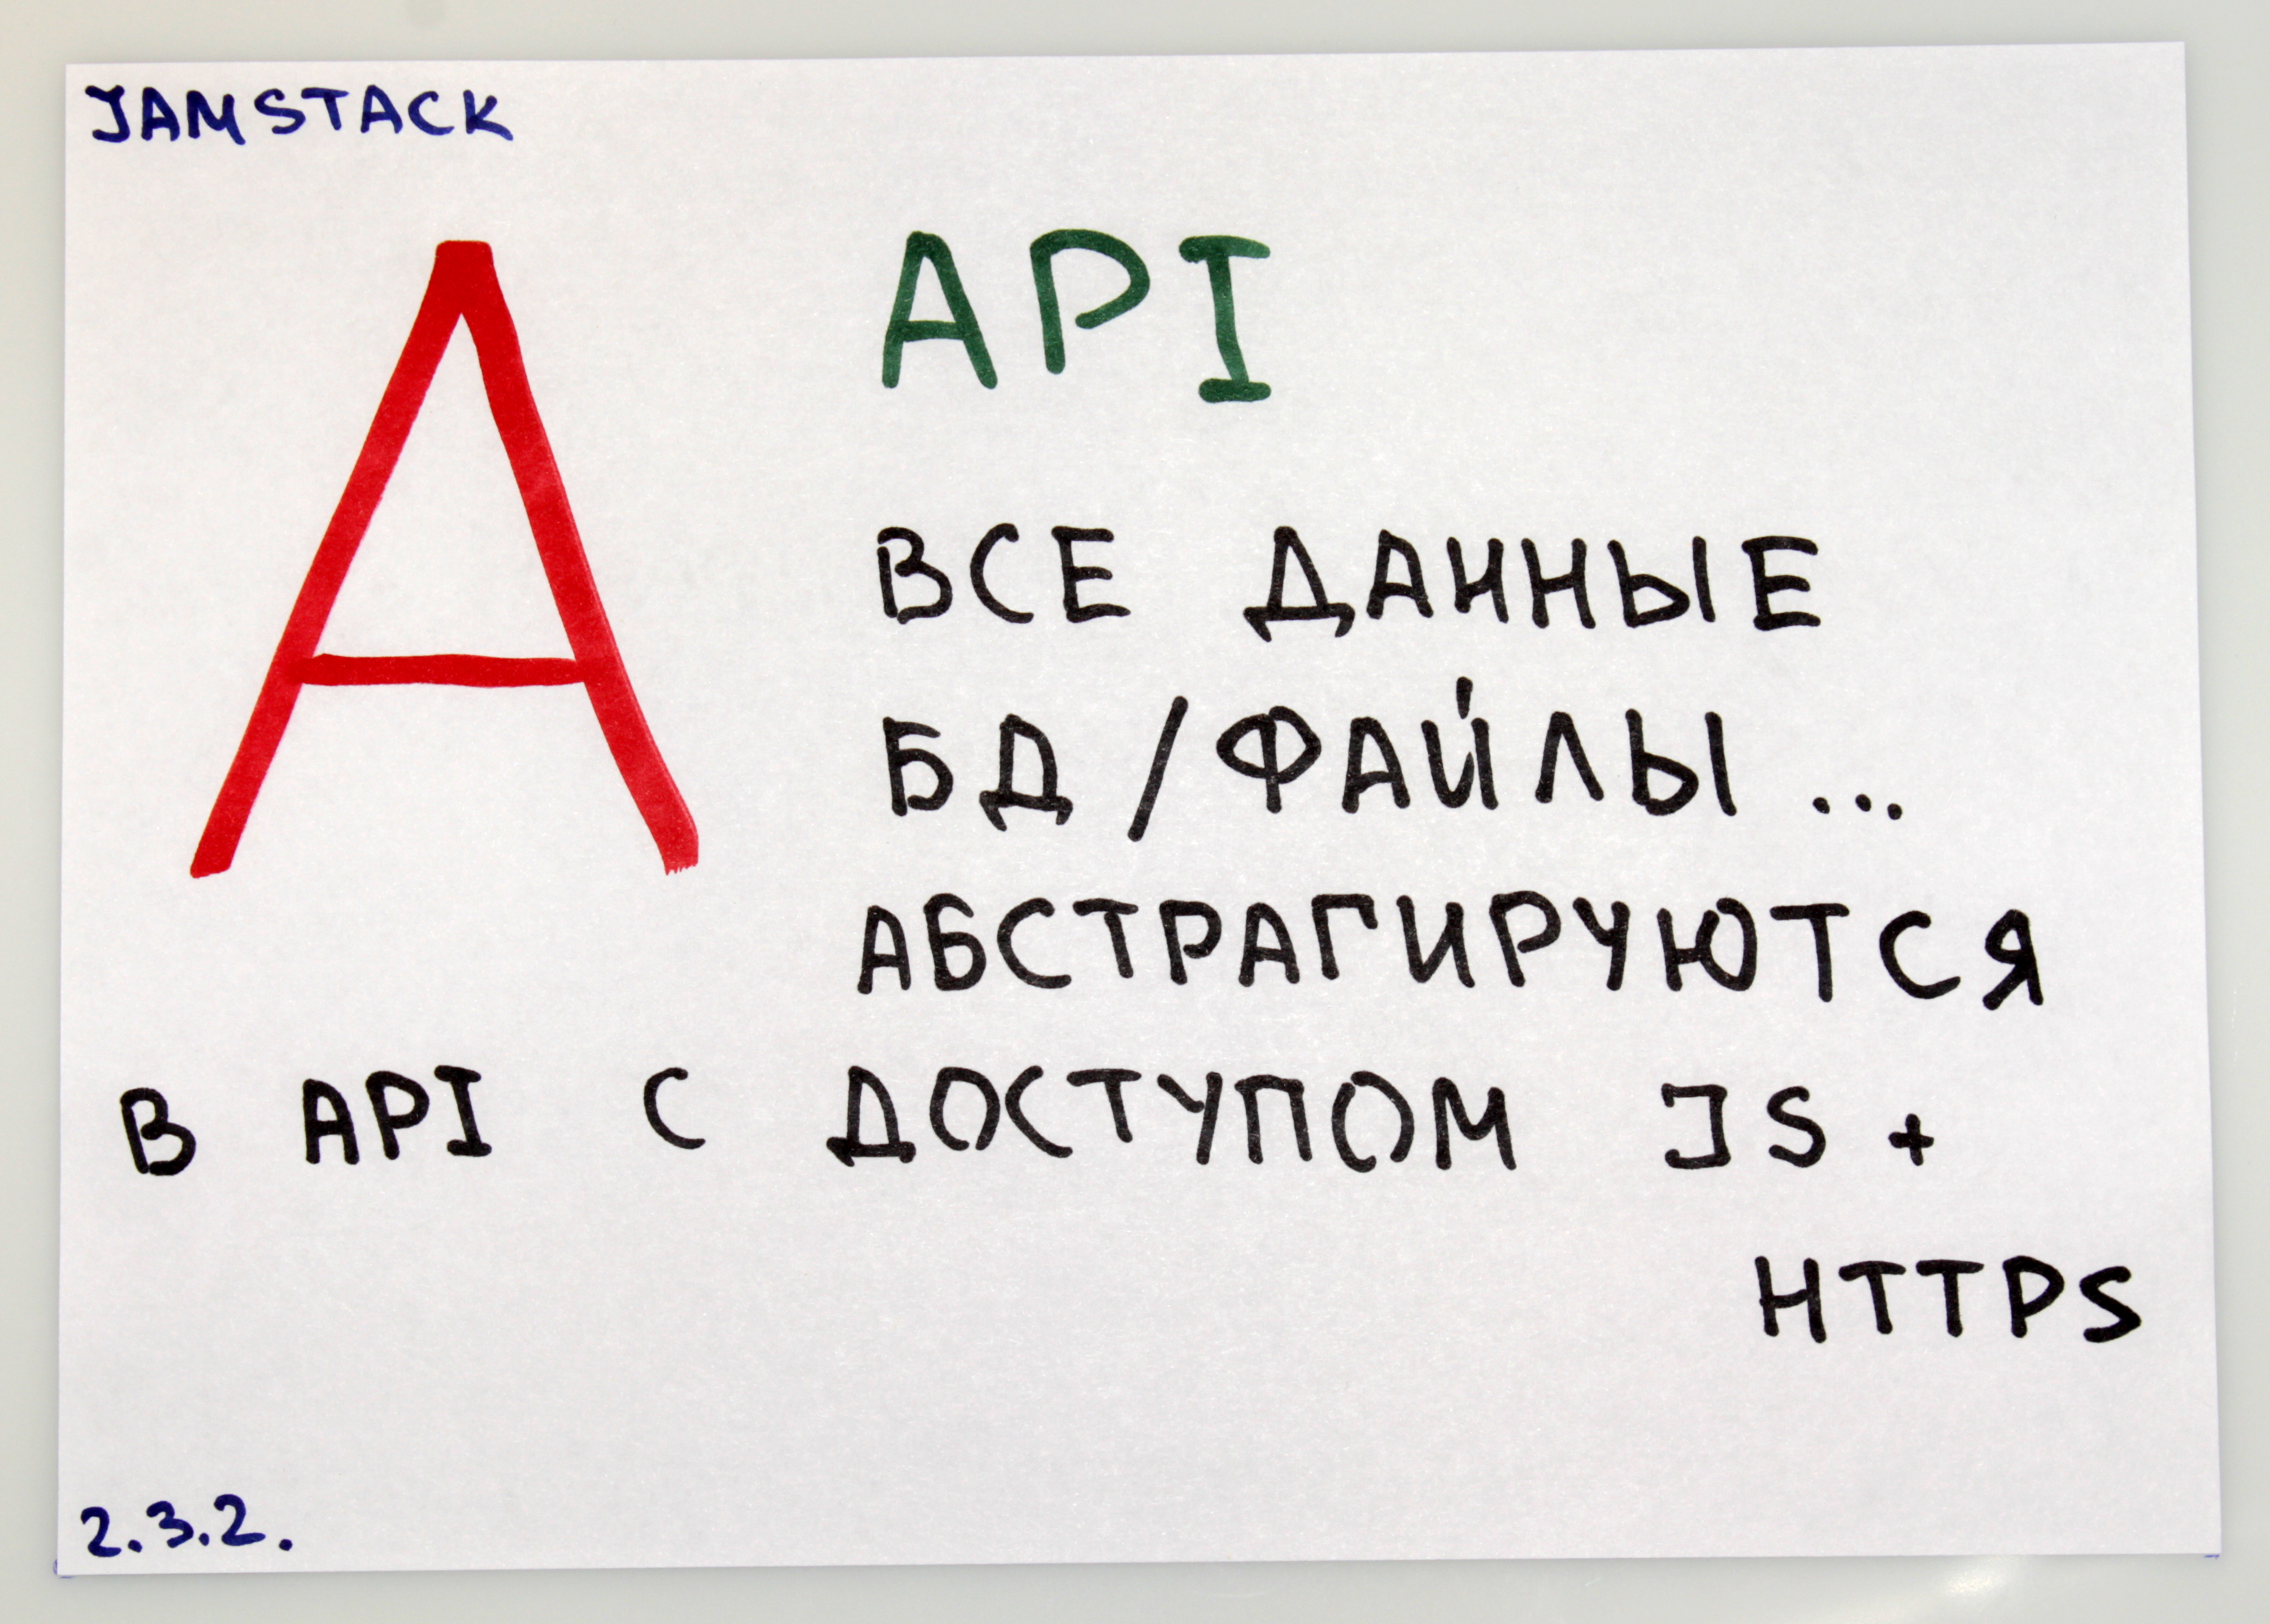 JAMSTACK
A
API
ВСЕ ДАННЫЕ
БД / ФАЙЛЫ ...
АБСТРАГИРУЮТСЯ
В API С ДОСТУПОМ JS +
HTTPS
2.3.2.